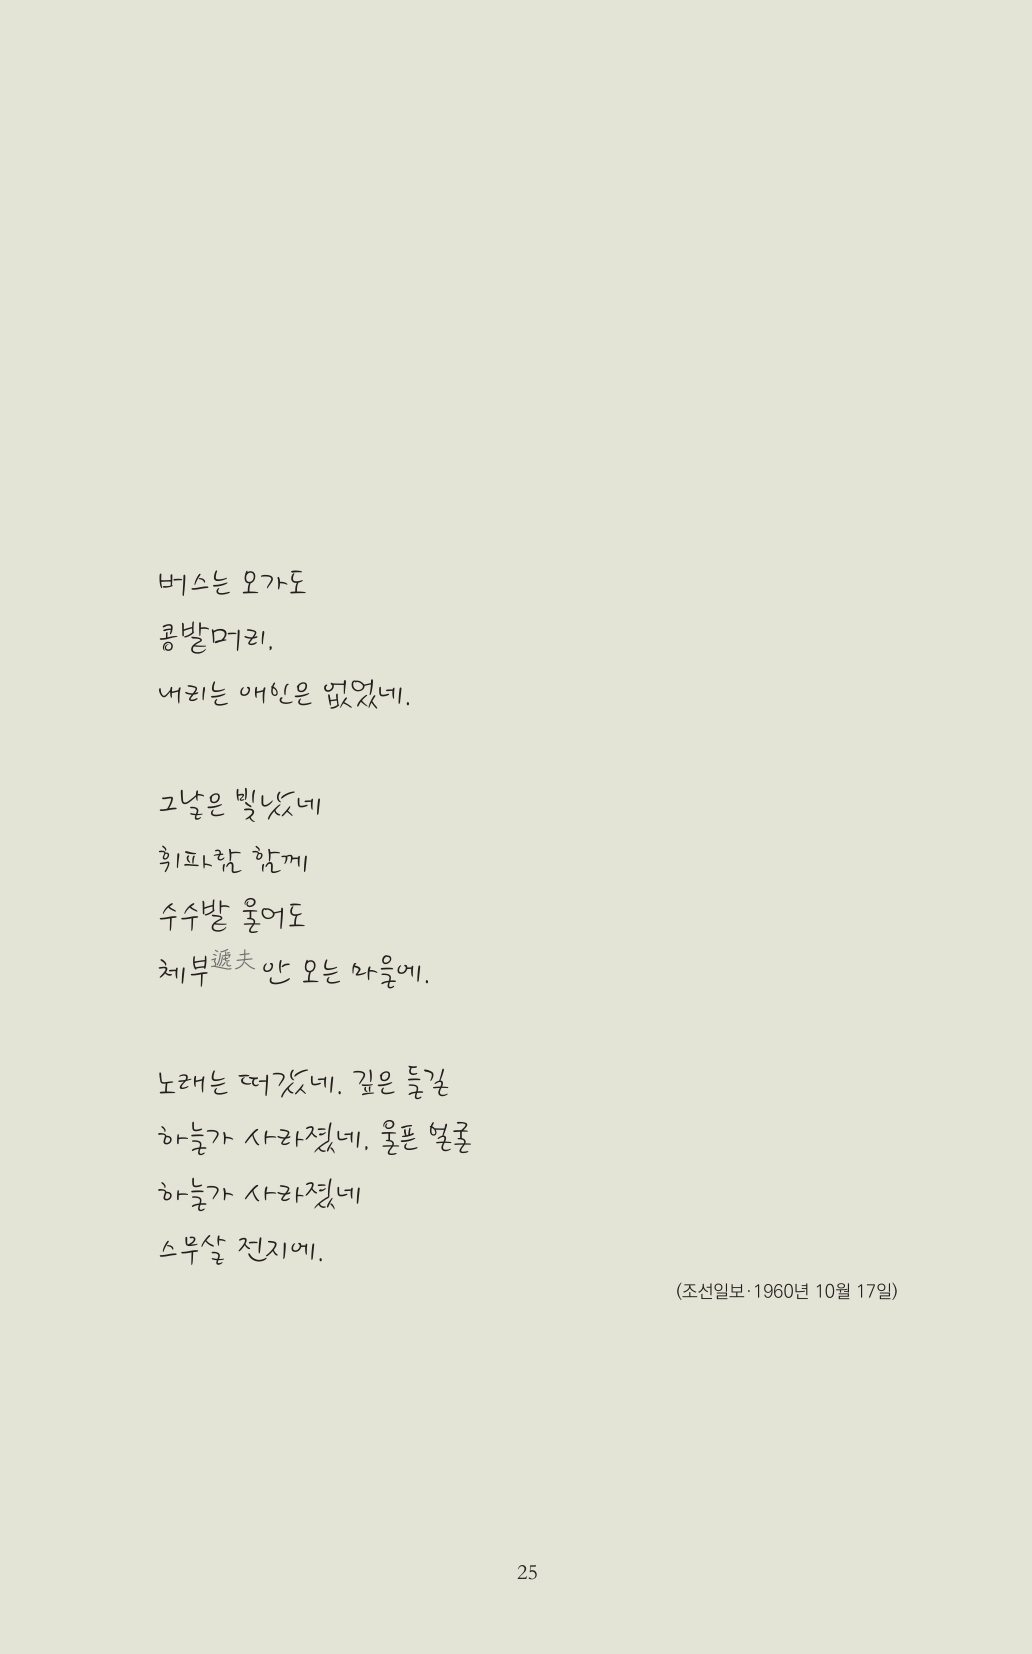 버스는 오가도
콩밭머리.
내리는 애인은 없었네.
그날은 빛났네
휘파람 함께
수수밭 울어도
체부遞夫 안 오는 마을에.
노래는 떠갔네. 깊은 들길
하늘가 사라졌네. 울픈 얼굴
하늘가 사라졌네
스무살 전지에.
(조선일보·1960년 10월 17일)
25